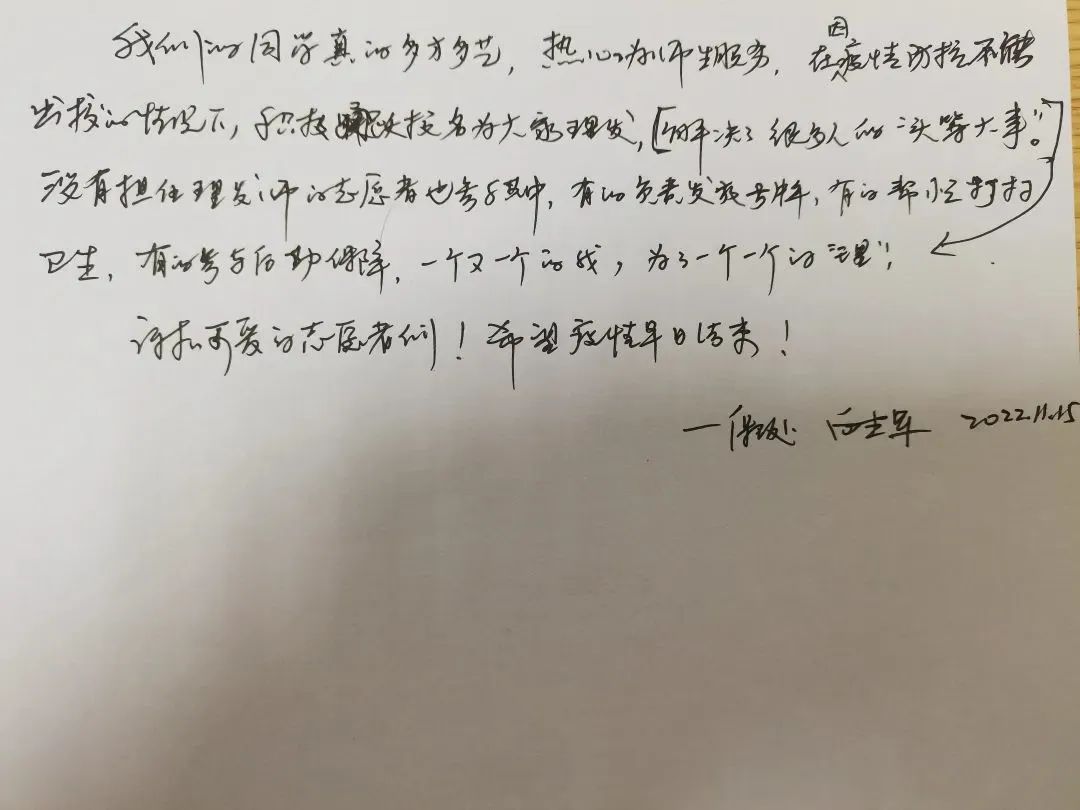 我们的同学真的多才多艺，热心为师生服务，在因疫情防控不能
出校的情况下，积极报名为大家理发，[解决了很多人的“头等大事”。]
没有担任理发师的志愿者也参与其中，有的负责发放号牌，有的帮忙打扫
卫生，有的参与后勤保障，一个又一个的我，为了一个一个的“理”！
谢谢可爱的志愿者们！希望疫情早日结束！
—保卫处 2022.11.15